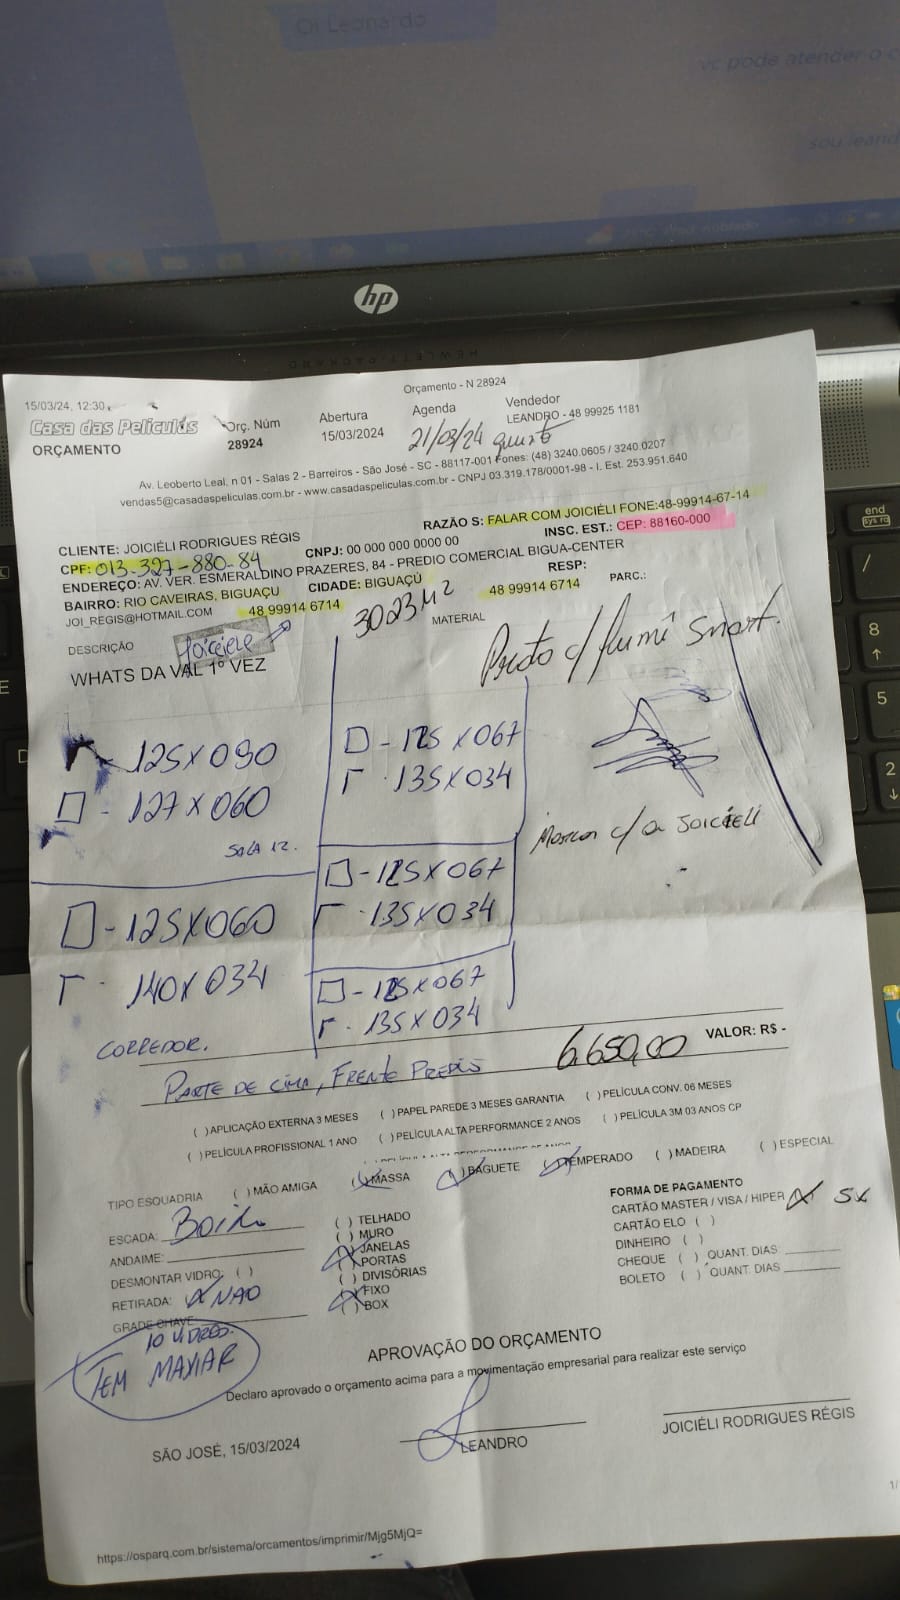 Oi Leonardo
vc pode atender o c
sou leand
hp
HEWLETT-PACKARD
Orçamento - N 28924
15/03/24, 12:30
Casa das Películas
ORÇAMENTO
Orç. Núm
28924
Abertura
15/03/2024
Agenda
21/03/24 quinta
Vendedor
LEANDRO - 48 99925 1181
Av. Leoberto Leal, n 01 - Salas 2 - Barreiros - São José - SC - 88117-001 Fones: (48) 3240.0605 / 3240.0207
vendas5@casadaspeliculas.com.br - www.casadaspeliculas.com.br - CNPJ 03.319.178/0001-98 - I. Est. 253.951.640
CLIENTE: JOICIÉLI RODRIGUES RÉGIS
RAZÃO S: FALAR COM JOICIÉLI FONE:48-99914-67-14
CPF: 013-327-880-84
CNPJ: 00 000 000 0000 00
INSC. EST.: CEP: 88160-000
ENDEREÇO: AV. VER. ESMERALDINO PRAZERES, 84 - PREDIO COMERCIAL BIGUA-CENTER
BAIRRO: RIO CAVEIRAS, BIGUAÇU
CIDADE: BIGUAÇÚ
RESP:
JOI_REGIS@HOTMAIL.COM
48 99914 6714
48 99914 6714
PARC.:
3023 M²
DESCRIÇÃO
Joiciele
MATERIAL
WHATS DA VAL 1º VEZ
Preto c/ fumê Smart.
125X090
127X060
SALA 12.
125X067
135X034
Marcar c/ a Joiciéli
125X067
135X034
125X060
140X034
CORREDOR.
125X067
135X034
PARTE DE CIMA, FRENTE PREDIO
6.650,00
VALOR: R$ -
( )APLICAÇÃO EXTERNA 3 MESES ( ) PAPEL PAREDE 3 MESES GARANTIA ( ) PELÍCULA CONV. 06 MESES
( ) PELÍCULA PROFISSIONAL 1 ANO ( ) PELÍCULA ALTA PERFORMANCE 2 ANOS ( ) PELÍCULA 3M 03 ANOS CP
TIPO ESQUADRIA ( ) MÃO AMIGA ( ) MASSA ( ) BAGUETE ( ) TEMPERADO ( ) MADEIRA ( ) ESPECIAL
ESCADA:
ANDAIME:
DESMONTAR VIDRO: ( )
RETIRADA: NÃO
GRADE CHAVE
( ) TELHADO
( ) MURO
( ) JANELAS
( ) PORTAS
( ) DIVISÓRIAS
( ) FIXO
( ) BOX
FORMA DE PAGAMENTO
CARTÃO MASTER / VISA / HIPER X 5X
CARTÃO ELO ( )
DINHEIRO ( )
CHEQUE ( ) QUANT. DIAS:
BOLETO ( ) QUANT. DIAS
10 VIDROS.
TEM MAXIAR
APROVAÇÃO DO ORÇAMENTO
Declaro aprovado o orçamento acima para a movimentação empresarial para realizar este serviço
SÃO JOSÉ, 15/03/2024
LEANDRO
JOICIÉLI RODRIGUES RÉGIS
1/
https://osparq.com.br/sistema/orcamentos/imprimir/Mjg5MjQ=
end
sys rq
/
8
5
2
E
D